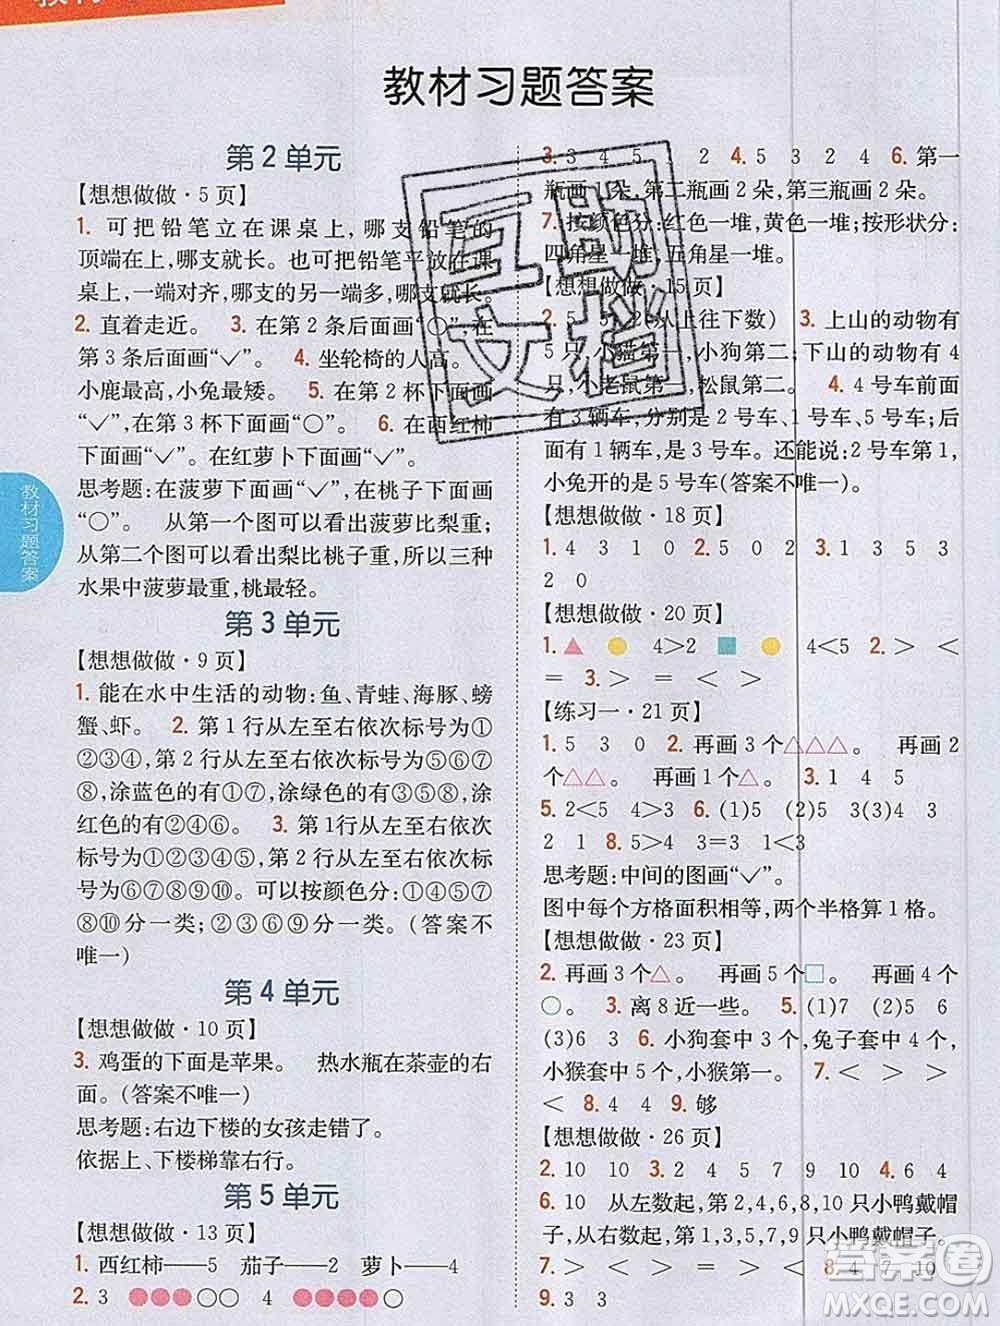 教材习题答案
第2单元
【想想做做·5页】
1. 可把铅笔立在课桌上,哪支铅笔的
顶端在上,哪支就长。也可把铅笔平放在课
桌上,一端对齐,哪支的另一端多,哪支就长。
2. 直着走近。 3. 在第2条后面画“○”,在
第3条后面画“✓”。 4. 坐轮椅的人高。
小鹿最高,小兔最矮。 5. 在第2杯下面画
“✓”,在第3杯下面画“○”。 6. 在西红柿
下面画“✓”。在红萝卜下面画“✓”。
思考题:在菠萝下面画“✓”,在桃子下面画
“○”。 从第一个图可以看出菠萝比梨重;
从第二个图可以看出梨比桃子重,所以三种
水果中菠萝最重,桃最轻。
第3单元
【想想做做·9页】
1. 能在水中生活的动物:鱼、青蛙、海豚、螃
蟹、虾。 2. 第1行从左至右依次标号为①
②③④,第2行从左至右依次标号为⑤⑥⑦
⑧,涂蓝色的有①⑦,涂绿色的有③⑤⑧,涂
红色的有②④⑥。 3. 第1行从左至右依次
标号为①②③④⑤,第2行从左至右依次标
号为⑥⑦⑧⑨⑩。可以按颜色分:①④⑤⑦
⑧⑩分一类;②③⑥⑨分一类。(答案不
唯一)
第4单元
【想想做做·10页】
3. 鸡蛋的下面是苹果。 热水瓶在茶壶的右
面。(答案不唯一)
思考题:右边下楼的女孩走错了。
依据上、下楼梯靠右行。
第5单元
【想想做做·13页】
1. 西红柿——5 茄子——2 萝卜——4
2. 3 ●●●○○ 4 ●●●●○
3. 3 4 5 1 2 4. 5 3 2 4 6. 第一
瓶画1朵,第二瓶画2朵,第三瓶画2朵。
7. 按颜色分:红色一堆,黄色一堆;按形状分:
四角星一堆,五角星一堆。
【想想做做·15页】
2 (从上往下数) 3. 上山的动物有
5只,小猫第一,小狗第二;下山的动物有4
只,小老鼠第一,松鼠第二。 4. 4号车前面
有3辆车,分别是2号车、1号车、5号车;后
面有1辆车,是3号车。还能说:2号车第1,
小兔开的是5号车(答案不唯一)。
【想想做做·18页】
1. 4 3 1 0 2. 5 0 2 3. 1 3 5 3
2 0
【想想做做·20页】
1. ▲ ● 4>2 ■ ● 4<5 2. > > <
= 3. > = < > =
【练习一·21页】
1. 5 3 0 2. 再画3个△△△。 再画2
个△△。 再画1个△。 4. = > < >
5. 2<5 4>3 6. (1)5 (2)5 (3)4 3
2 1 8. 5>4 3=3 1<3
思考题:中间的图画“✓”。
图中每个方格面积相等,两个半格算1格。
【想想做做·23页】
2. 再画3个△。 再画5个□。 再画4个
○。 3. 离8近一些。 5. (1)7 (2)5 2
(3)6 3 6. 小狗套中3个,兔子套中4个,
小猴套中5个,小猴第一。 7. < > < >
> 8. 4 4 9. 够
【想想做做·26页】
2. 10 10 3. 2 4 5 7 9 10 4. 6 4
6. 10 从左数起,第2,4,6,8,10只小鸭戴帽
子,从右数起,第1,3,5,7,9只小鸭戴帽子。
7. > < > < > > 8. 4 7 10
9. 3 3
教材习题答案
互助
文档
答案圈
MXQE.COM